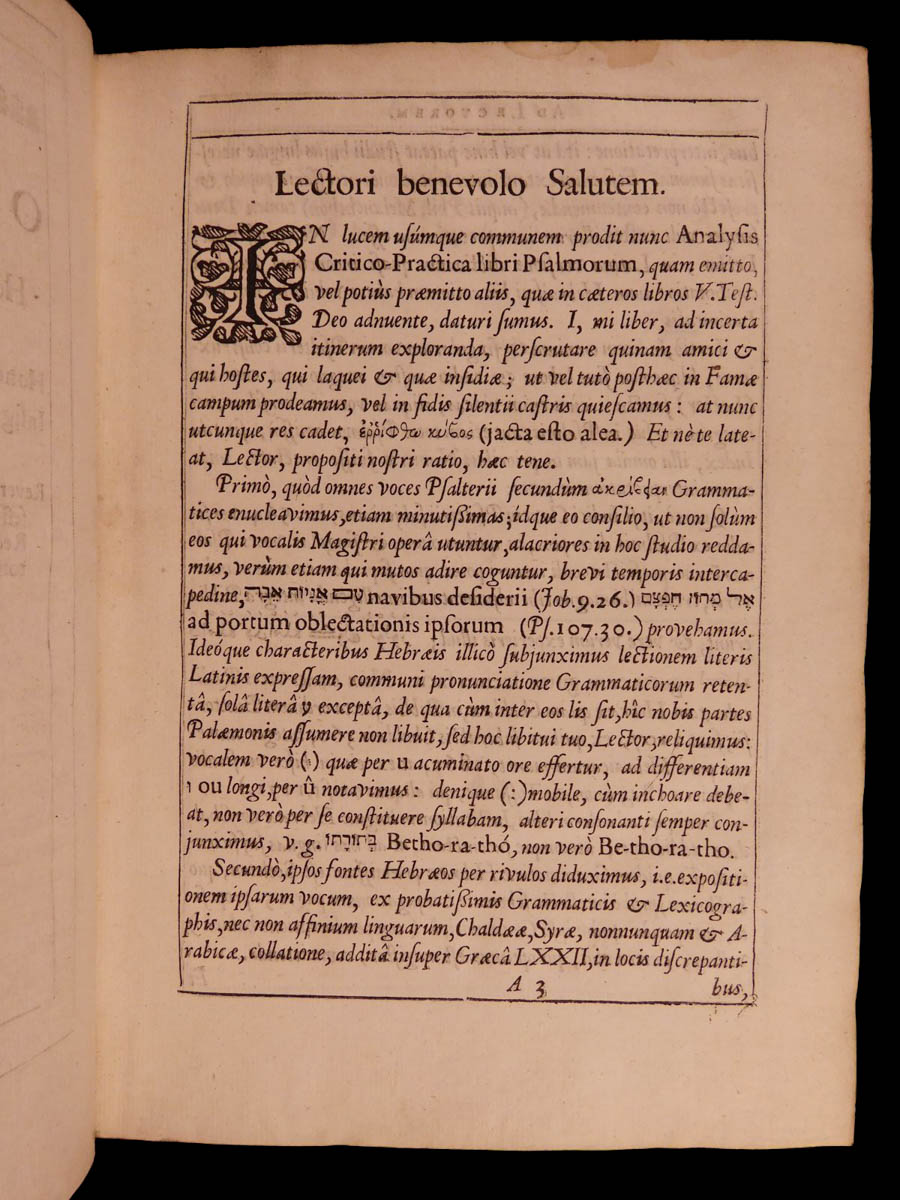 Lectori benevolo Salutem.
IN lucem usúmque communem prodit nunc Analysis
Critico-Practica libri Psalmorum, quam emitto,
vel potiùs præmitto aliis, quæ in cæteros libros V. Test.
Deo adnuente, daturi sumus. I, mi liber, ad incerta
itinerum exploranda, perscrutare quinam amici &
qui hostes, qui laquei & quæ insidiæ; ut vel tutò posthæc in Famæ
campum prodeamus, vel in fidis silentii castris quiescamus: at nunc
utcunque res cadet, ἐῤῥίφθω κύβος (jacta esto alea.) Et nè te late-
at, Lector, propositi nostri ratio, hæc tene.
Primò, quòd omnes voces Psalterii secundùm ἀκρίβειαν Gramma-
tices enucleavimus, etiam minutissimas; idque eo consilio, ut non solùm
eos qui vocalis Magistri operâ utuntur, alacriores in hoc studio redda-
mus, verùm etiam qui mutos adire coguntur, brevi temporis interca-
pedine, עִם אֳנִיּוֹת אֵבֶה navibus desiderii (Job. 9. 26.) אֶל מְחוֹז חֶפְצָם
ad portum oblectationis ipsorum (Ps. 107. 30.) provehamus.
Ideóque characteribus Hebræis illicò subjunximus lectionem literis
Latinis expressam, communi pronunciatione Grammaticorum reten-
tâ, solâ literâ ע exceptâ, de qua cùm inter eos lis sit, hîc nobis partes
Palæmonis assumere non libuit, sed hoc libitui tuo, Lector, reliquimus:
vocalem verò (ֻ) quæ per u acuminato ore effertur, ad differentiam
ו ou longi, per û notavimus: denique (:) mobile, cùm inchoare debe-
at, non verò per se constituere syllabam, alteri consonanti semper con-
junximus, v. g. בְּתוֹרָתוֹ Betho-ra-thó, non verò Be-tho-ra-tho.
Secundò, ipsos fontes Hebræos per rivulos diduximus, i.e. expositi-
onem ipsarum vocum, ex probatissimis Grammaticis & Lexicogra-
phis, nec non affinium linguarum, Chaldææ, Syræ, nonnunquam & A-
rabicæ, collatione, additâ insuper Græcâ LXXII, in locis discrepanti-
A 3 bus,